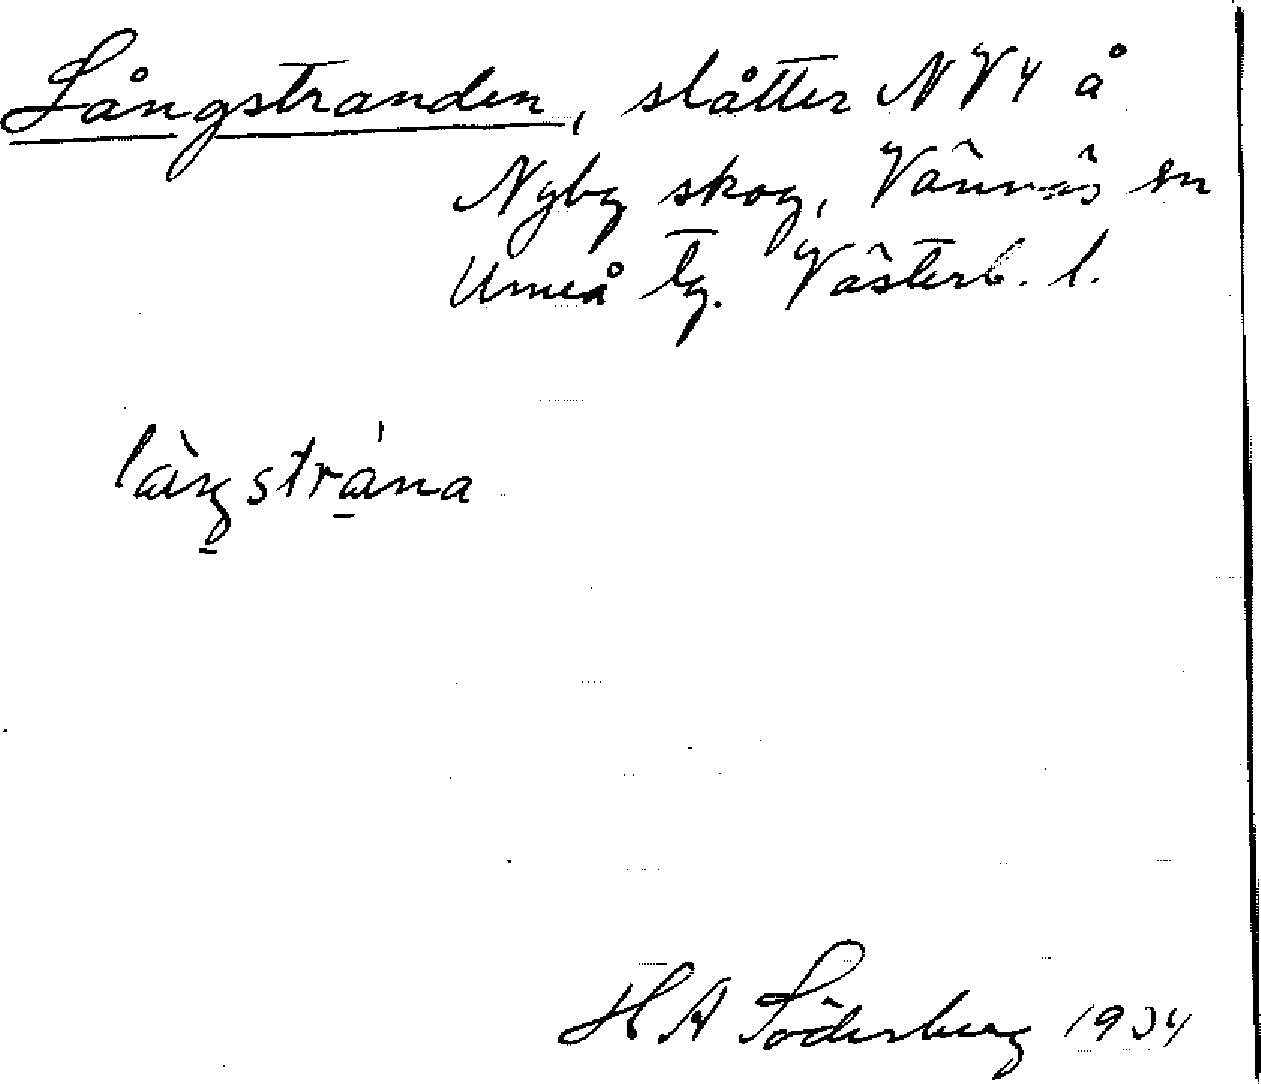 Långstranden, slåtter NV4 å
Nyby skog, Vännäs sn
Umeå tg. Västerb. l.
H A Söderberg 1934